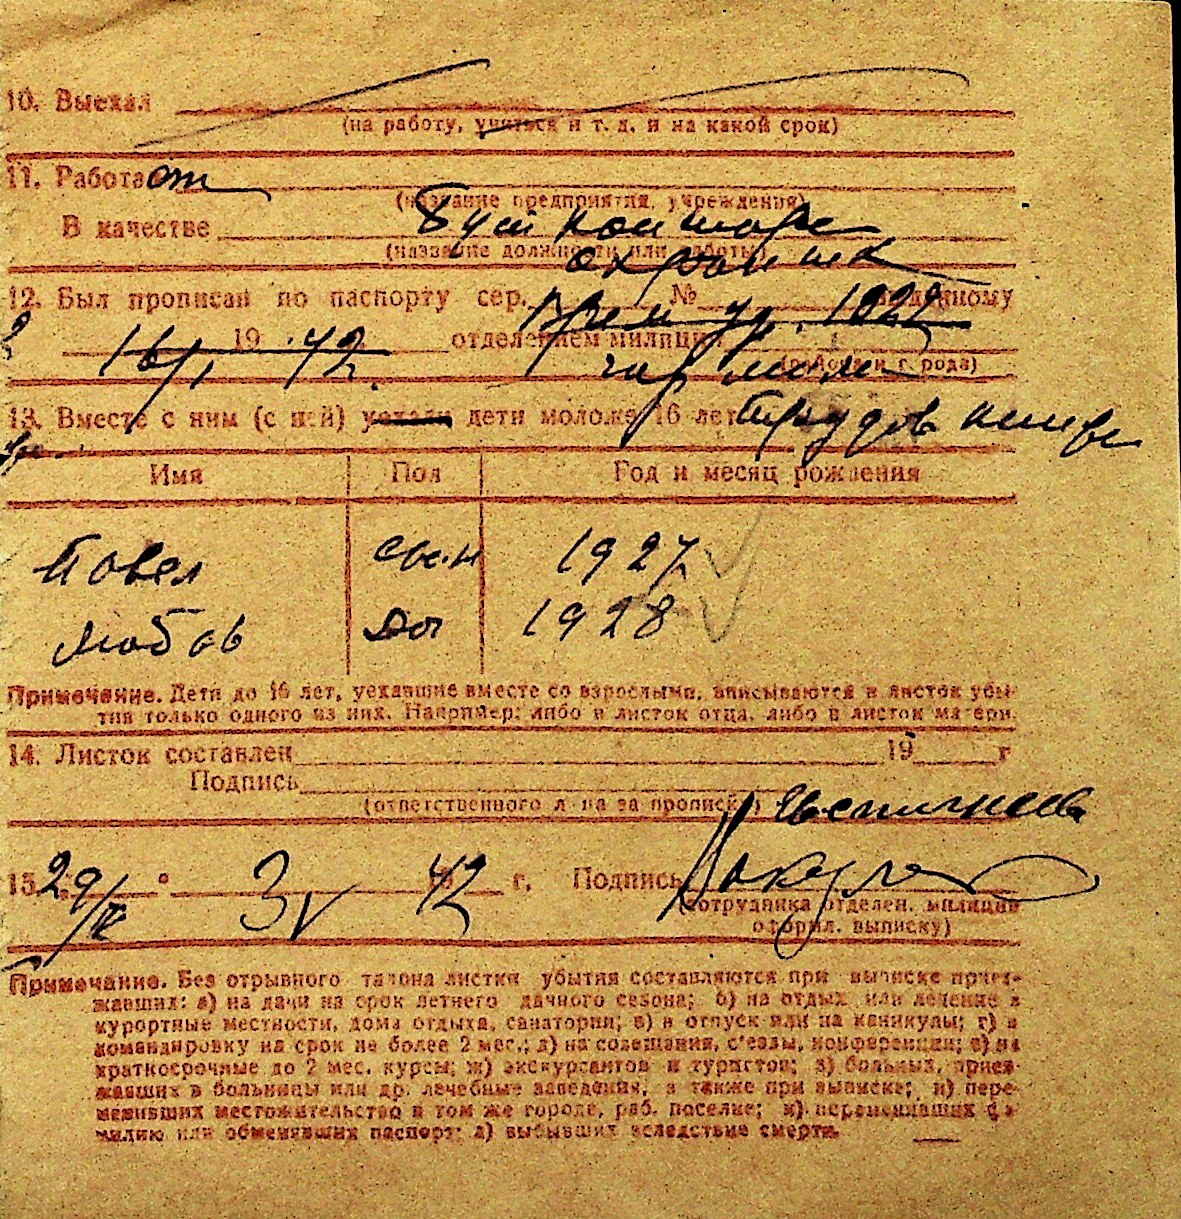 10. Выехал
(на работу, учиться и т. д. и на какой срок)
11. Работа от
(название предприятия, учреждения)
В качестве
(название должности или работы)
12. Был прописан по паспорту сер. № выданному
16/I 19 42. отделением милиции
(района и города)
13. Вместе с ним (с ней) уехали дети моложе 16 лет
Имя Пол Год и месяц рождения
Павел сын 1927
Любов до 1928
Примечание. Дети до 16 лет, уехавшие вместе со взрослыми, вписываются в листок убы-
тия только одного из них. Например: либо в листок отца, либо в листок матери.
14. Листок составлен 19 г
Подпись
(ответственного лица за прописку)
15. 29/IV 3/V 42 г. Подпись
(сотрудника отделен. милиции
оформл. выписку)
Примечание. Без отрывного талона листки убытия составляются при выписке приез-
жавших: а) на дачи на срок летнего дачного сезона; б) на отдых или лечение в
курортные местности, дома отдыха, санатории; в) в отпуск или на каникулы; г) в
командировку на срок не более 2 мес.; д) на совещания, с'езды, конференции; е) на
краткосрочные до 2 мес. курсы; ж) экскурсантов и туристов; з) больных, приез-
жавших в больницы или др. лечебные заведения, а также при выписке; и) пере-
менивших местожительство в том же городе, раб. поселке; к) переменивших фа-
милию или обменявших паспорт; л) выбывших вследствие смерти.